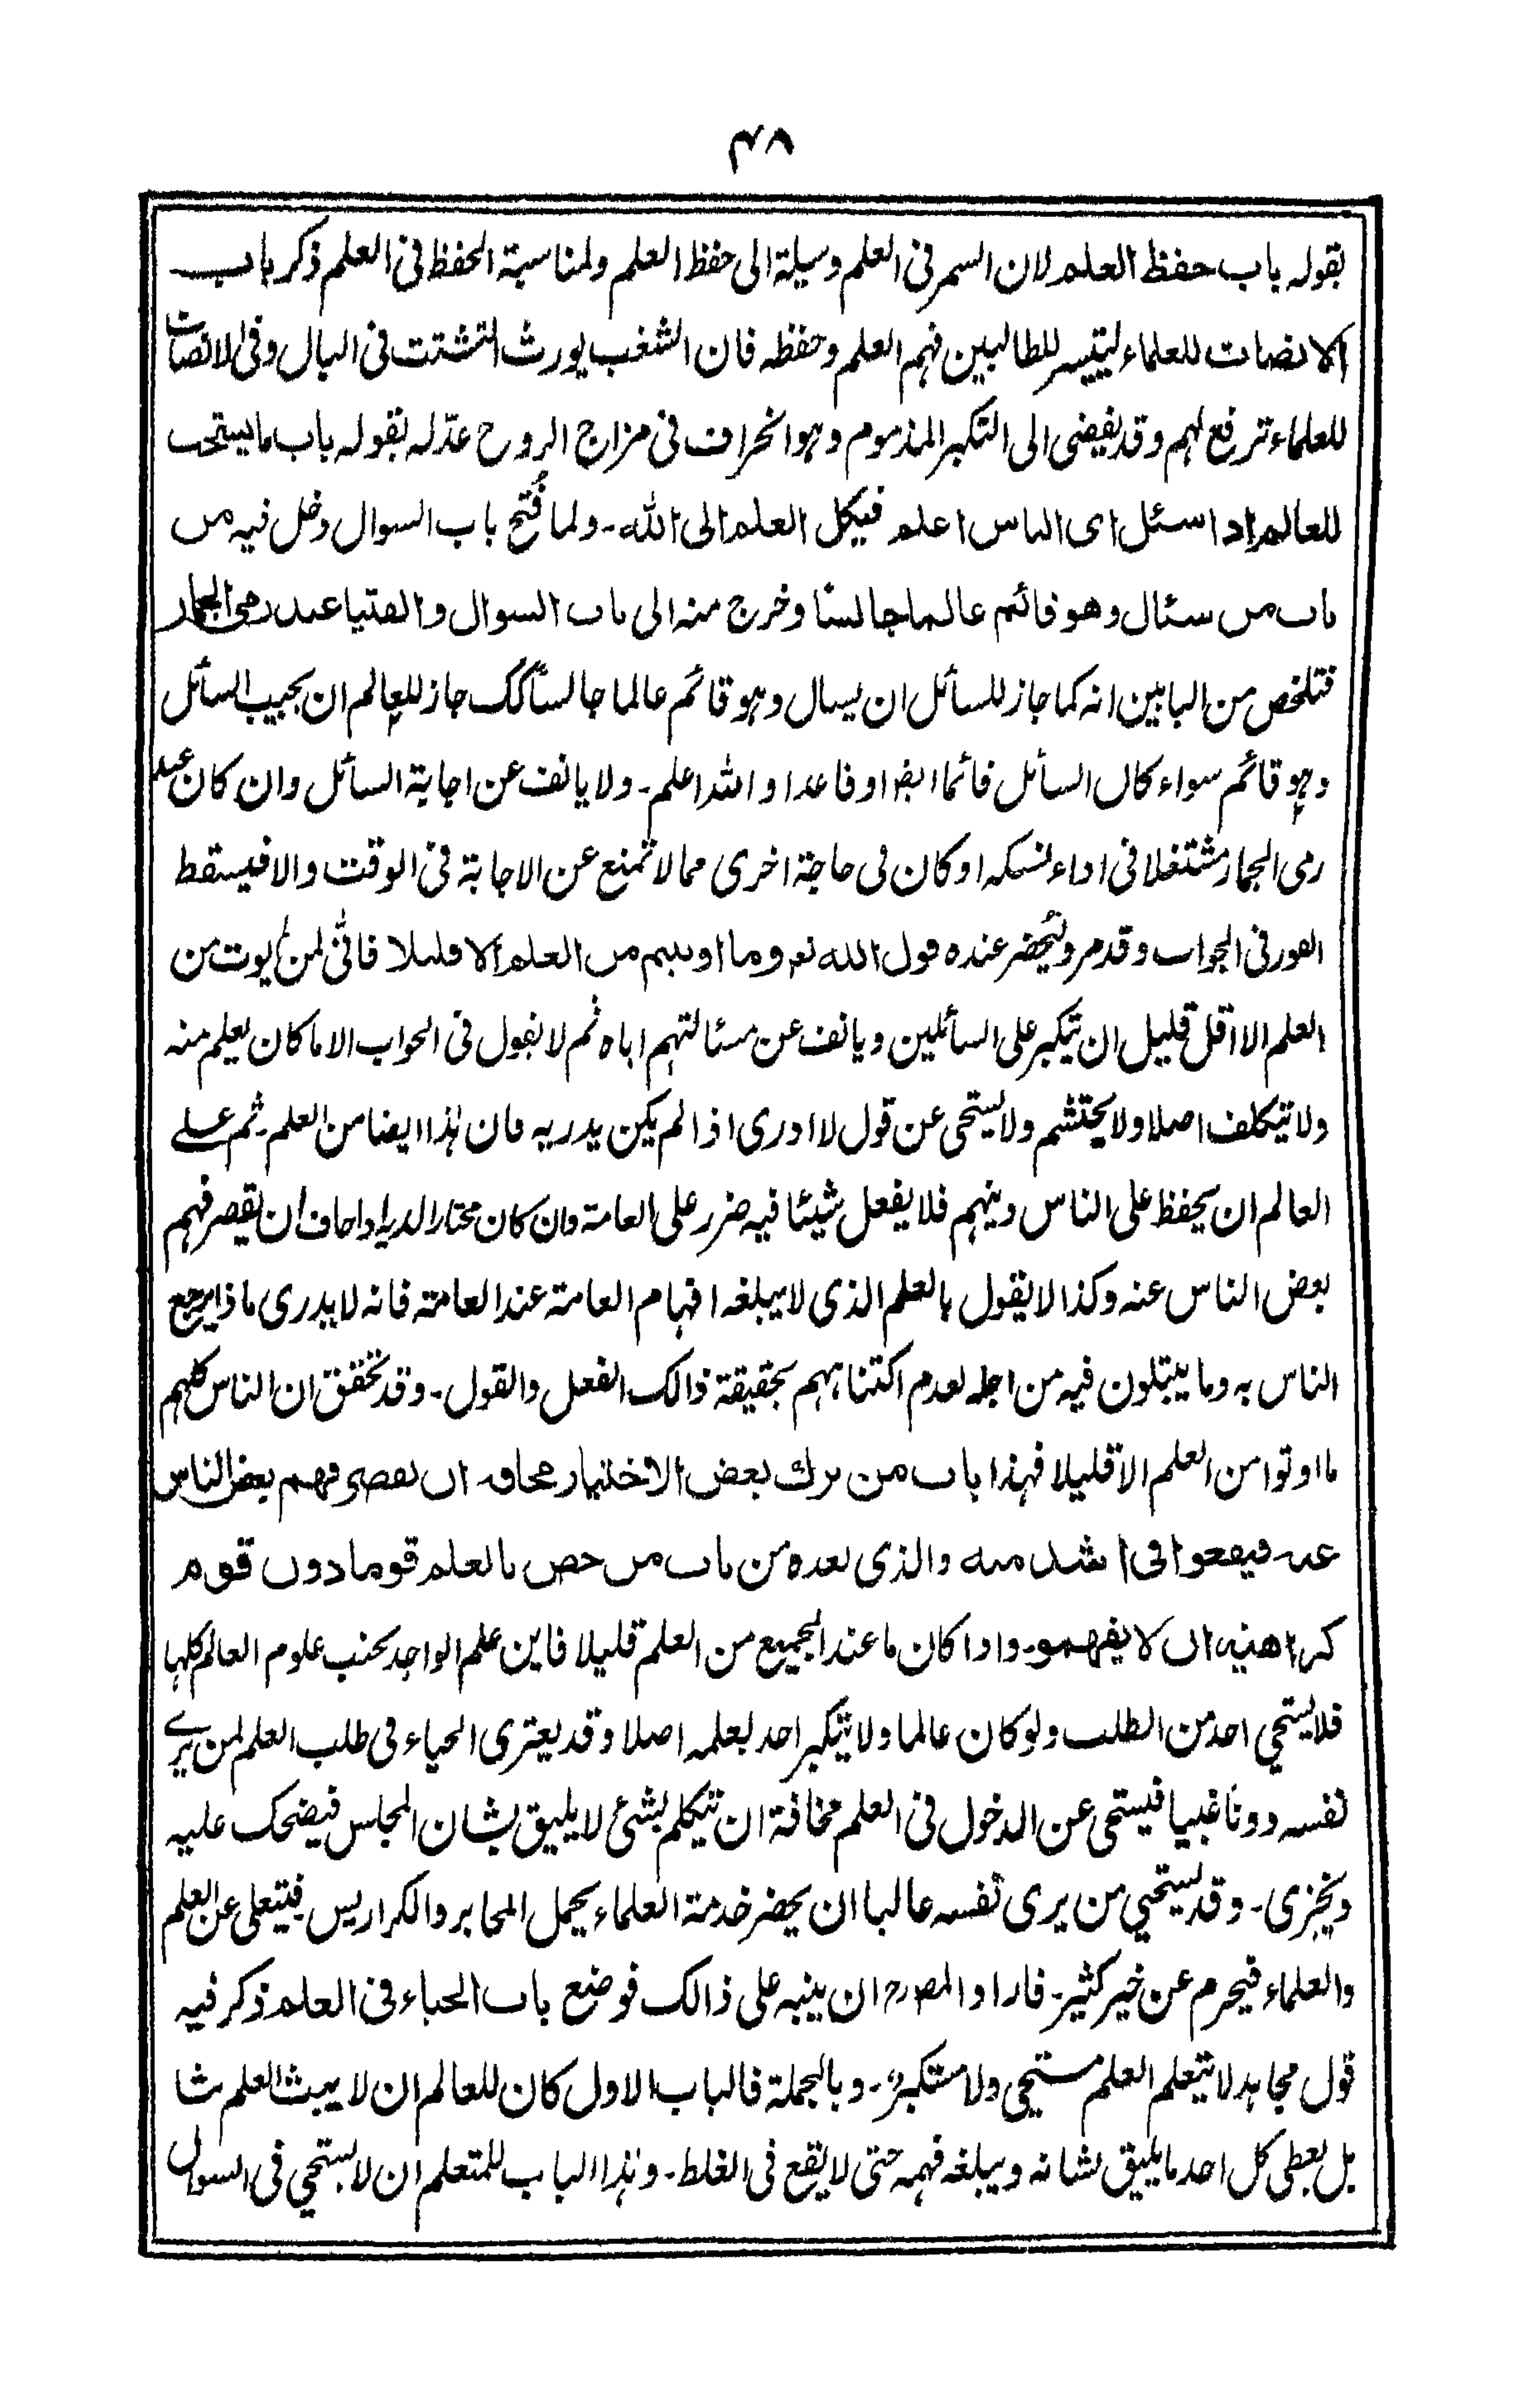 ۴۸
بقوله باب حفظ العلم لان السمر فى العلم وسيلة الى حفظ العلم ولمناسبة الحفظ فى العلم ذكر باب
الانصات للعلماء ليتيسر للطالبين فهم العلم وحفظه فان الشغب يورث التشتت فى البال وفى الانصات
للعلماء ترفع لهم وقد يفضى الى التكبر المذموم وهو انحراف فى مزاج الروح عدّله بقوله باب ما يستحب
للعالم اذا سئل اى الناس اعلم فيكل العلم الى الله۔ ولما فُتح باب السوال دخل فيه من
باب من سئال وهو قائم عالما جالسا وخرج منه الى باب السوال والفتيا عند رمى الجمار
فتلخص من البابين انه كما جاز للسائل ان يسال وهو قائم عالما جالسا كك جاز للعالم ان يجيب السائل
وهو قائم سواء كان السائل قائما ايضا او قاعدا والله اعلم۔ ولا يانف عن اجابة السائل وان كان عند
رمى الجمار مشتغلا فى اداء نسكه او كان فى حاجة اخرى مما لا تمنع عن الاجابة فى الوقت والا فيسقط
الفور فى الجواب وقد مر وليُحضر عنده قول الله تعـ وما اوتيتم من العلم الا قليلا فانّى لمن لم يوت من
العلم الا اقل قليل ان يتكبر على السائلين ويانف عن مسئالتهم اياه ثم لا يقول فى الجواب الا ما كان يعلم منه
ولا يتكلف اصلا ولا يحتشم ولا يستحى عن قول لا ادرى اذا لم يكن يدريه فان هٰذا ايضا من العلم۔ ثم على
العالم ان يحفظ على الناس دينهم فلا يفعل شيئا فيه ضرر على العامة وان كان مختارا لديه اذا خاف ان يقصر فهم
بعض الناس عنه وكذا لا يقول بالعلم الذى لا يبلغه افهام العامة عند العامة فانه لا يدرى ماذا يرجع
الناس به وما يبتلون فيه من اجله لعدم اكتناههم بحقيقة ذالك الفعل والقول۔ وقد تحقق ان الناس كلهم
ما اوتوا من العلم الا قليلا فهذا باب من ترك بعض الاختيار مخافة ان يقصر فهم بعض الناس
عنه فيقعوا فى اشد منه والذى بعده من باب من خص بالعلم قوما دون قوم
كراهية ان لا يفهموا۔ واذا كان ما عند الجميع من العلم قليلا فاين علم الواحد بجنب علوم العالم كلها
فلا يستحي احد من الطلب ولو كان عالما ولا يتكبر احد بعلمه اصلا وقد يعترى الحياء فى طلب العلم لمن يرے
نفسه دونًا غبيا فيستحى عن الدخول فى العلم مخافة ان يتكلم بشئ لا يليق بشان المجلس فيضحك عليه
ويخزى۔ وقد يستحيي من يرى نفسه عاليا ان يحضر خدمة العلماء يحمل المحابر والكراريس فيتعلى عن العلم
والعلماء فيحرم عن خير كثير۔ فاراد المصرح ان ينبه على ذالك فوضع باب الحياء فى العلم ذكر فيه
قول مجاهد لا يتعلم العلم مستحي ولا مستكبر۔ وبالجملة فالباب الاول كان للعالم ان لا يبث العلم بثا
بل يعطى كل احد ما يليق بشانه ويبلغه فهمه حتى لا يقع فى الغلط۔ وهٰذا الباب للمتعلم ان لا يستحي فى السوال